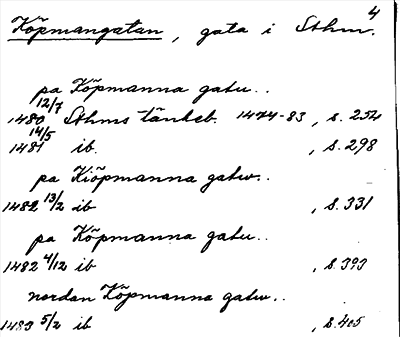 4
Köpmangatan, gata i Sthm.
pa Köpmanna gatu..
1480 12/7 Sthms tänkeb. 1474-83, s. 252
1481 14/5 ib. , s. 298
pa Kiöpmanna gatw..
1482 13/2 ib , s. 331
pa Köpmanna gatu..
1482 4/12 ib , s. 393
nordan Köpmanna gatw..
1483 5/2 ib , s. 405